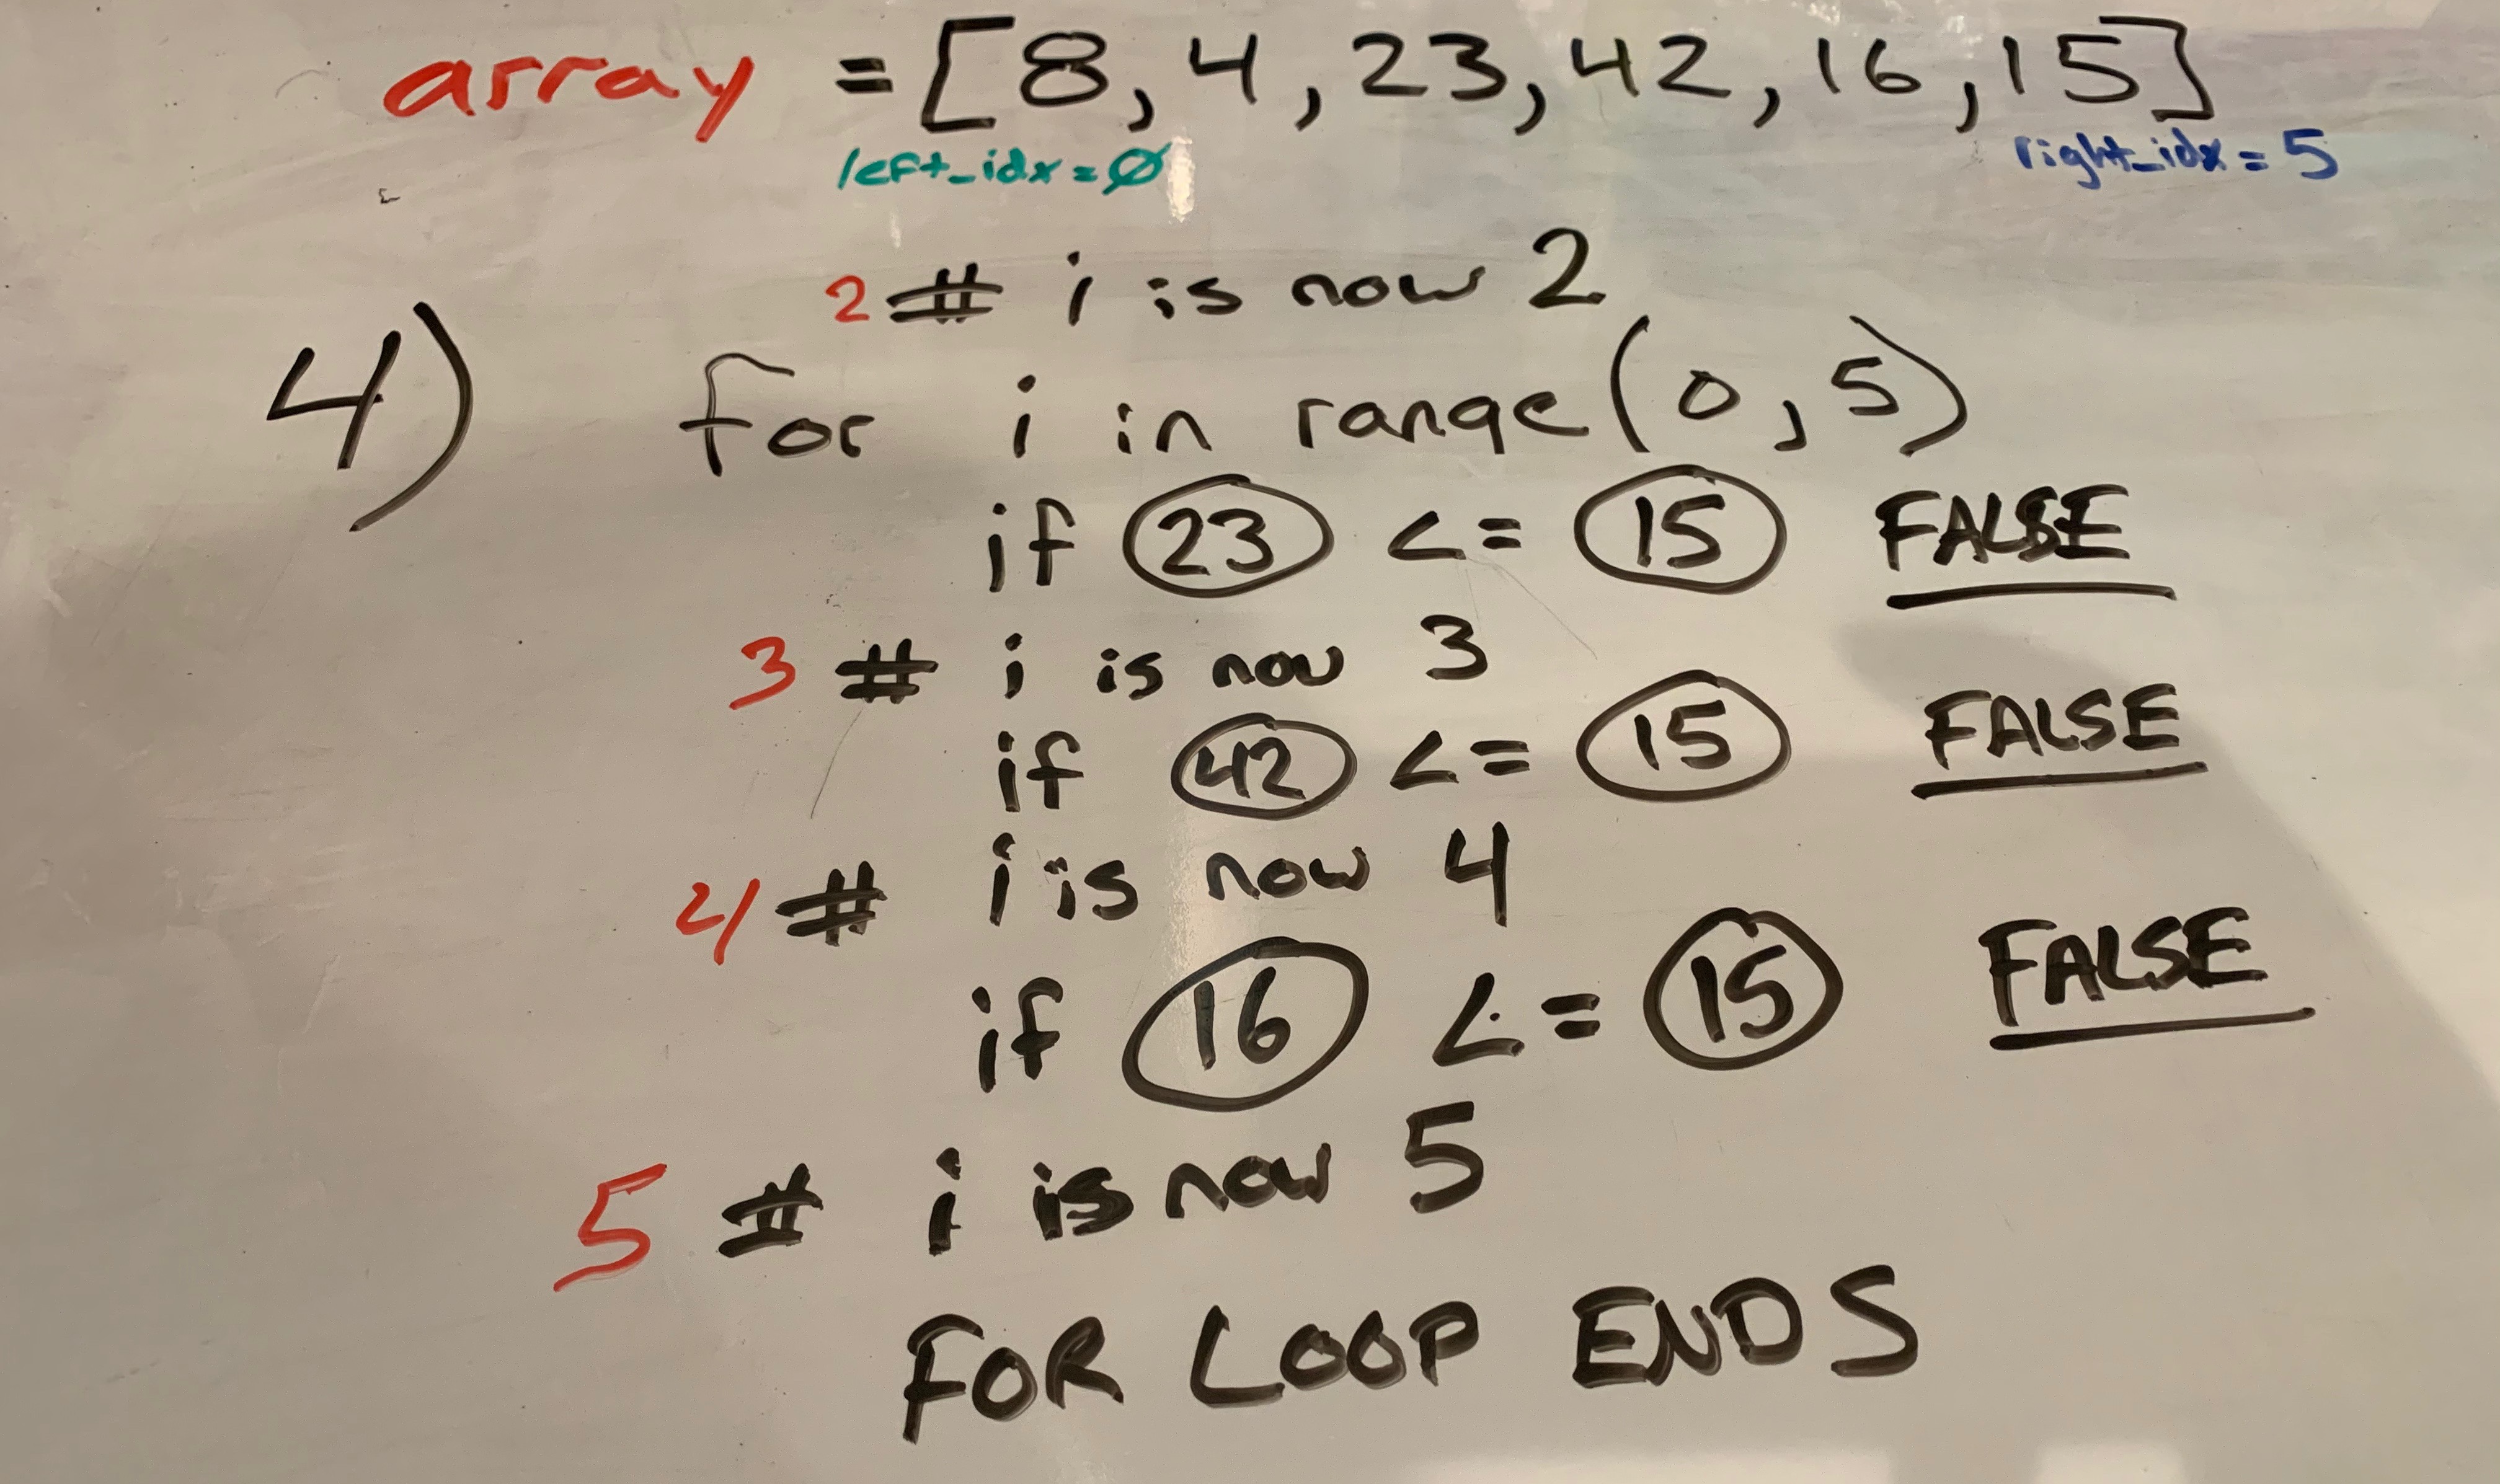 array = [8, 4, 23, 42, 16, 15]
left_idx = Ø right_idx = 5
2 # i is now 2
4) for i in range(0, 5)
if 23 <= 15 FALSE
3 # i is now 3
if 42 <= 15 FALSE
4 # i is now 4
if 16 <= 15 FALSE
5 # i is now 5
FOR LOOP ENDS